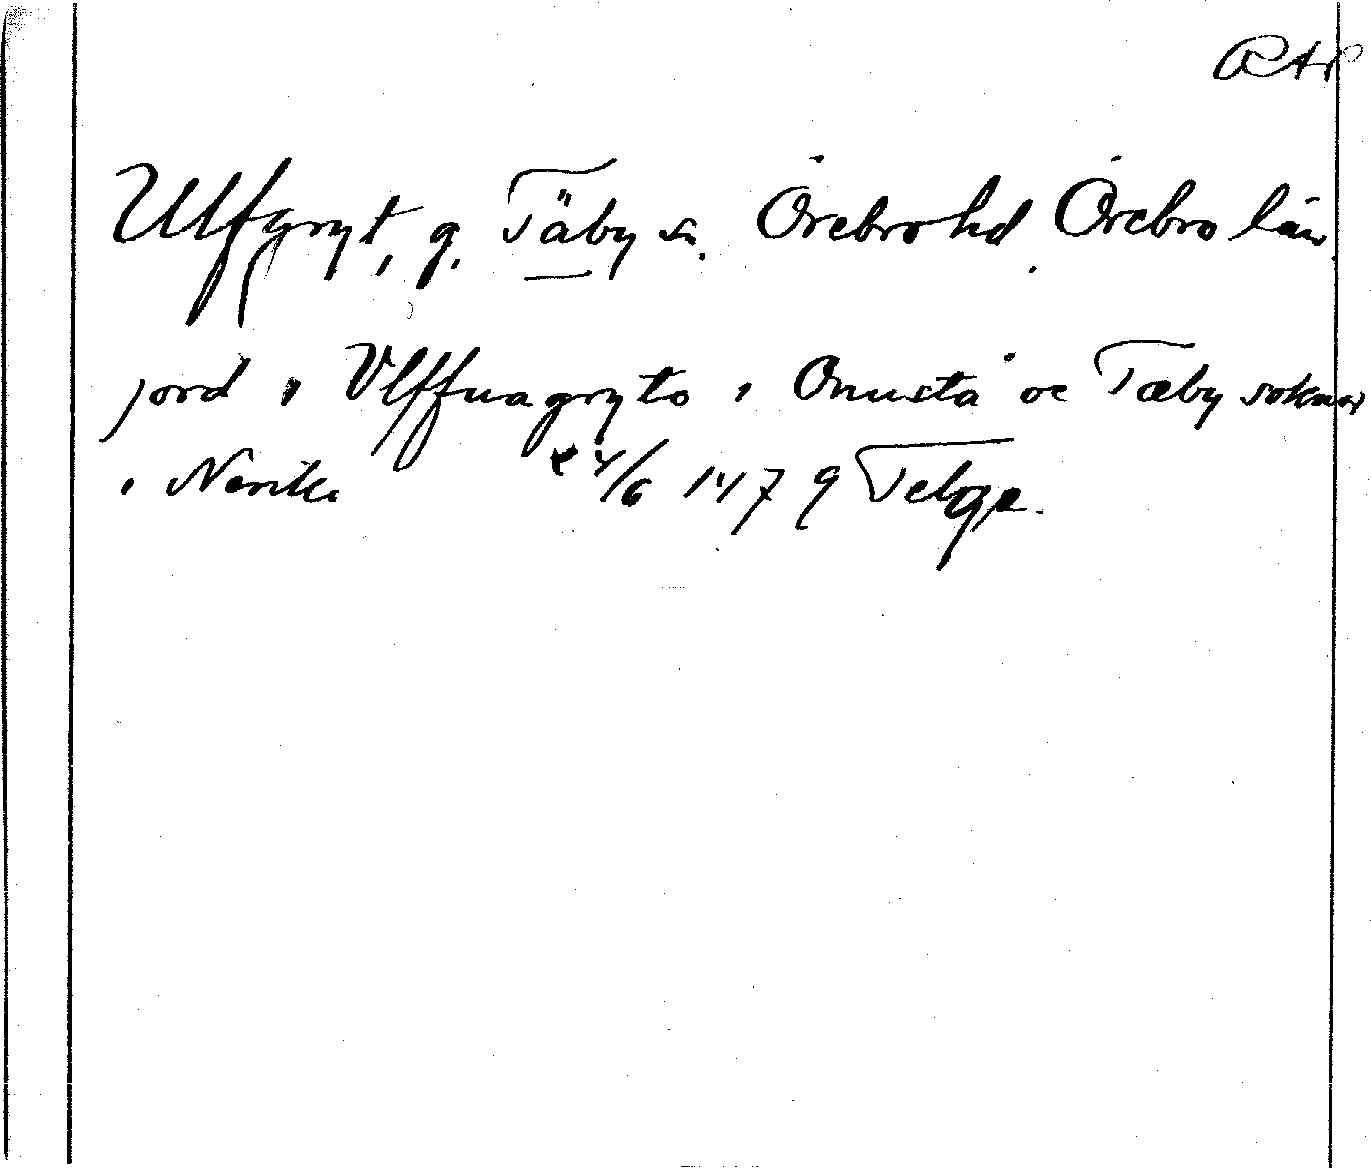 RAP
Ulfgryt, g. Täby sn. Örebro hd. Örebro län.
jord i Vlffuagryto i Onusta oc Tæby soknar
i Nerike 4/6 1479 Telge.